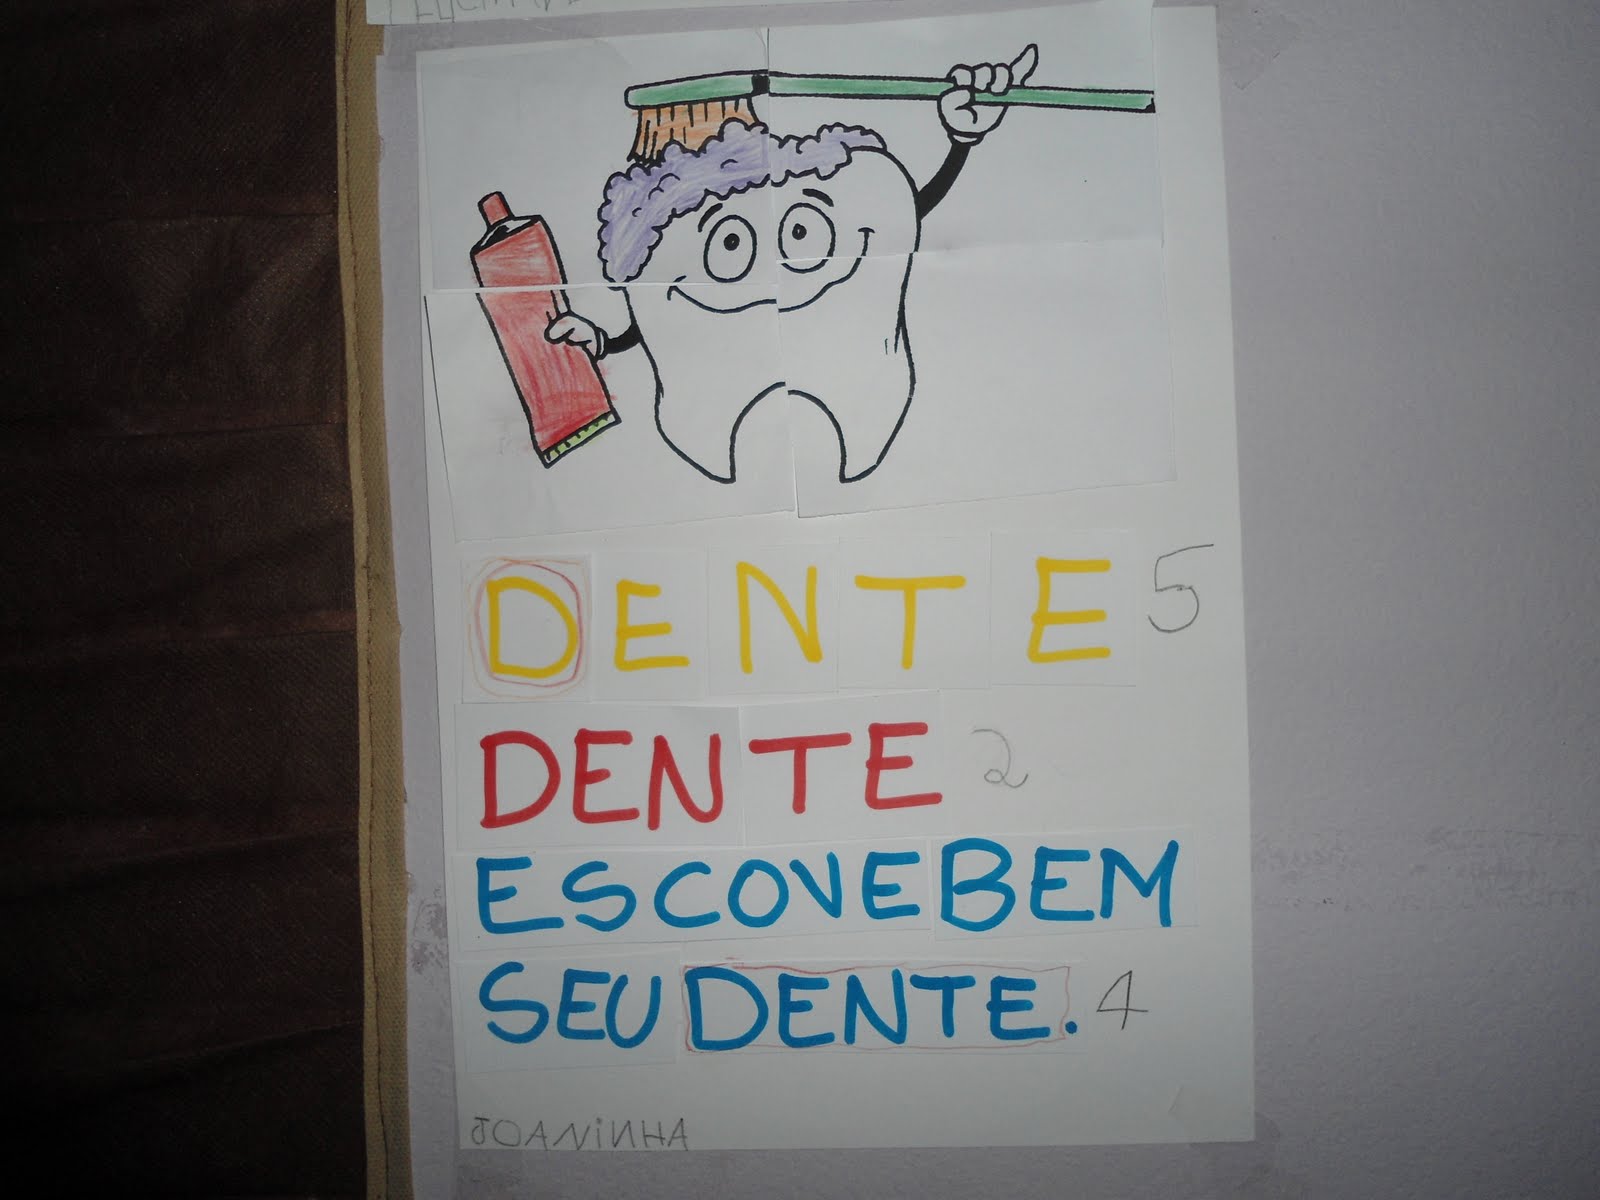 DENTE 5
DENTE 2
ESCOVE BEM
SEU DENTE. 4
JOANINHA